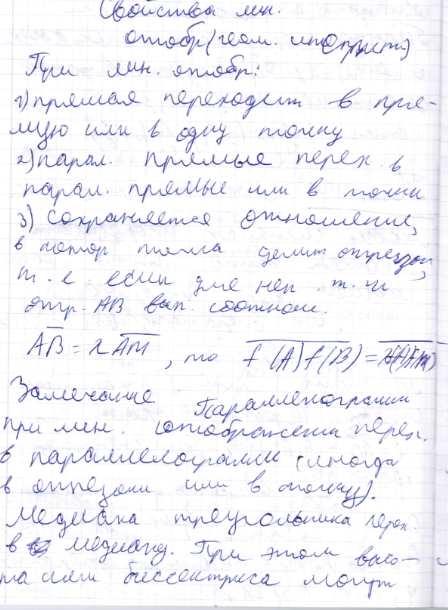 Свойства лин.
отобр (геом. интерпрет.)
При лин. отобр:
1) прямая переходит в пря-
мую или в одну точку
2) парал. прямые перех. в
парал. прямые или в точки
3) Сохраняется отношение,
в котор точка делит отрезок,
т. е если для нек. т. М
отр. АВ вып. соотнош.
AB = λ AM , то f(A)f(B) =
Замечание Параллелограмм
при лин. отображении перех.
в параллелограмм (иногда
в отрезок или в точку).
Медиана треугольника перех.
в медиану. При этом высо-
та или биссектриса могут